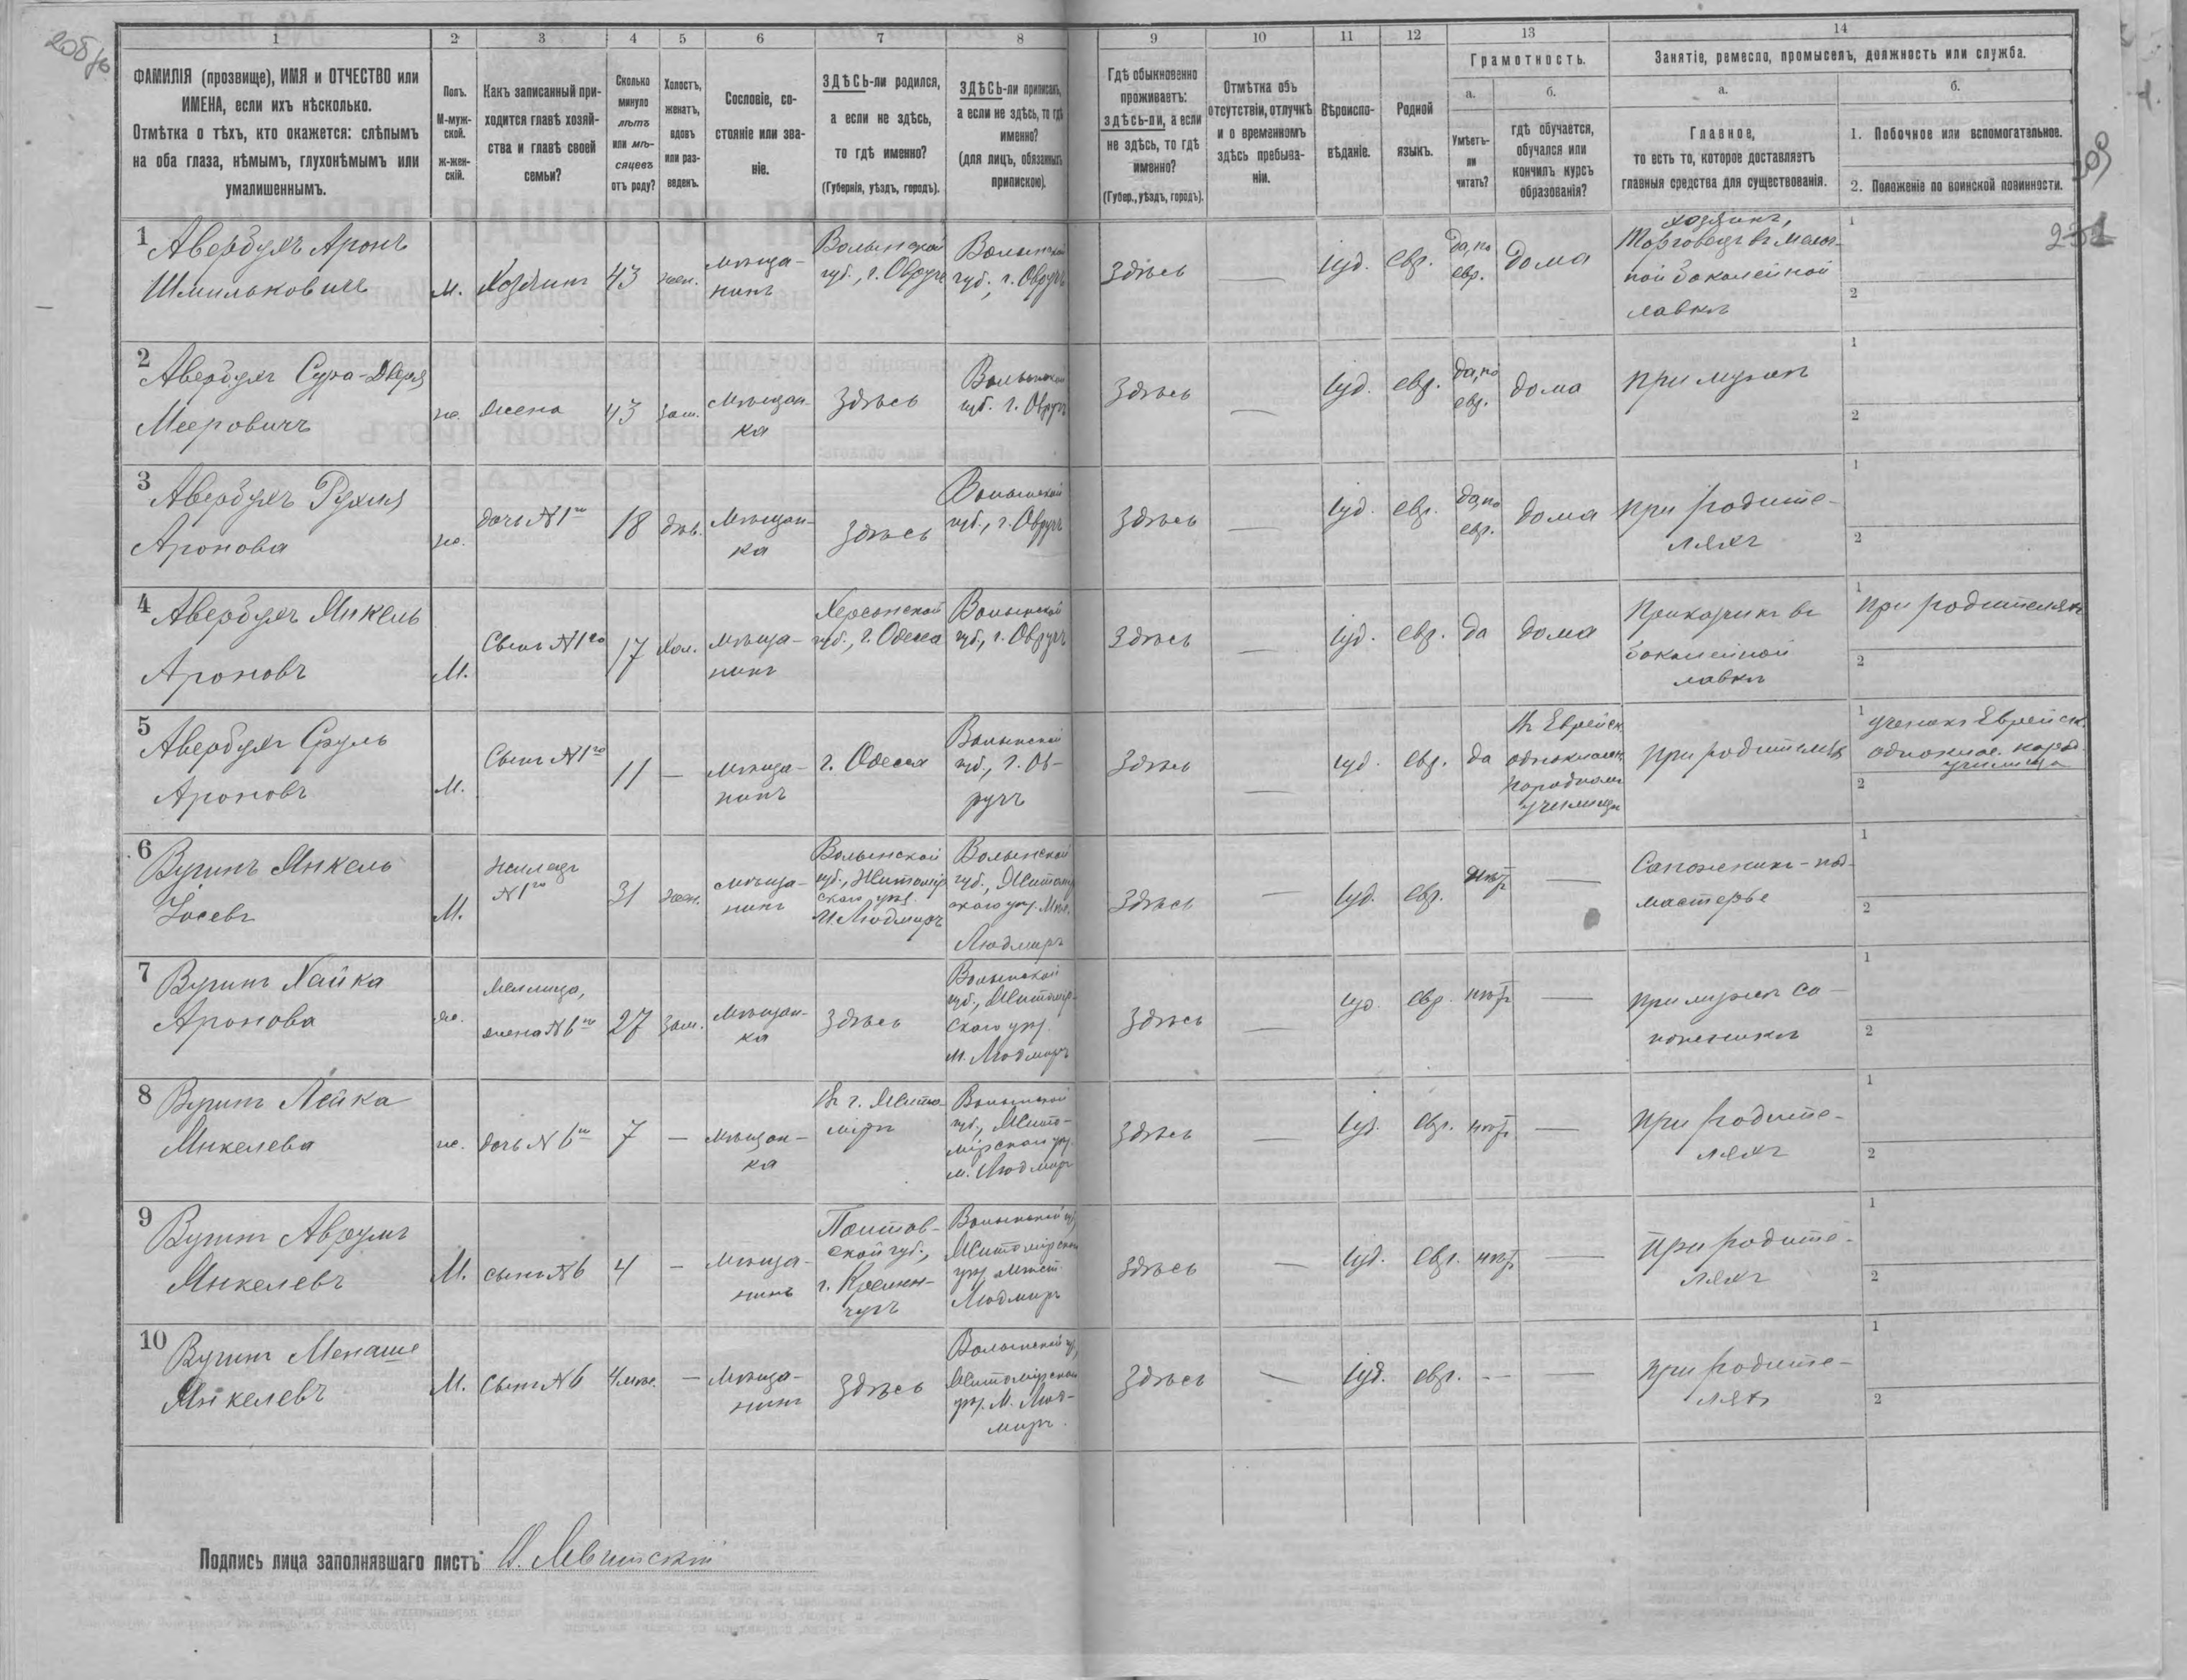 206 об
1 2 3 4 5 6 7 8 9 10 11 12 13 14
ФАМИЛІЯ (прозвище), ИМЯ и ОТЧЕСТВО или
ИМЕНА, если ихъ нѣсколько.
Отмѣтка о тѣхъ, кто окажется: слѣпымъ
на оба глаза, нѣмымъ, глухонѣмымъ или
умалишеннымъ.
Полъ.
М-муж-
ской.
ж-жен-
скій.
Какъ записанный при-
ходится главѣ хозяй-
ства и главѣ своей
семьи?
Сколько
минуло
лѣтъ
или мѣ-
сяцевъ
отъ роду?
Холостъ,
женатъ,
вдовъ
или раз-
веденъ.
Сословіе, со-
стояніе или зва-
ніе.
ЗДѢСЬ-ли родился,
а если не здѣсь,
то гдѣ именно?
(Губернія, уѣздъ, городъ).
ЗДѢСЬ-ли приписанъ,
а если не здѣсь, то гдѣ
именно?
(для лицъ, обязанныхъ
припискою).
Гдѣ обыкновенно
проживаетъ:
здѣсь-ли, а если
не здѣсь, то гдѣ
именно?
(Губер., уѣздъ, городъ).
Отмѣтка объ
отсутствіи, отлучкѣ
и о временномъ
здѣсь пребыва-
ніи.
Вѣроиспо-
вѣданіе.
Родной
языкъ.
Грамотность.
а.
Умѣетъ-
ли
читать?
б.
гдѣ обучается,
обучался или
кончилъ курсъ
образованія?
Занятіе, ремесло, промыселъ, должность или служба.
а.
Главное,
то есть то, которое доставляетъ
главныя средства для существованія.
б.
1. Побочное или вспомогательное.
2. Положеніе по воинской повинности.
1 Авербухъ Аронъ
Шмильковичъ
М.
Хозяинъ
43
жен.
мѣща-
нинъ
Волынской
губ., г. Овручъ
Волынской
губ., г. Овручъ
Здѣсь
—
Іуд.
евр.
да, по
евр.
дома
хозяинъ,
Торговецъ въ мелоч-
ной бакалейной
лавкѣ
1
2
2 Авербухъ Сура-Двера
Мееровичъ
ж.
жена
43
зам.
мѣщан-
ка
Здѣсь
Волынской
губ. г. Овручъ
Здѣсь
—
Іуд.
евр.
да, по
евр.
дома
при мужѣ
1
2
3 Авербухъ Рухля
Аронова
ж.
дочь №1го
18
дѣв.
мѣщан-
ка
Здѣсь
Волынской
губ., г. Овручъ
Здѣсь
—
Іуд.
евр.
да, по
евр.
дома
при родите-
ляхъ
1
2
4 Авербухъ Янкель
Ароновъ
М.
Сынъ №1го
17
хол.
мѣща-
нинъ
Херсонской
губ., г. Одесса
Волынской
губ., г. Овручъ
Здѣсь
—
Іуд.
евр.
да
дома
Прикащикъ въ
бакалейной
лавкѣ
1 при родителяхъ
2
5 Авербухъ Сруль
Ароновъ
М.
Сынъ №1го
11
—
мѣща-
нинъ
г. Одесса
Волынской
губ., г. Ов-
ручъ
Здѣсь
—
Іуд.
евр.
да
въ Еврейск.
одноклассн.
народномъ
училищѣ
при родителяхъ
1 ученикъ Еврейск.
однокласс. народ.
училища
2
6 Вугинъ Янкель
Іосевъ
М.
№1го
31
жен.
мѣща-
нинъ
Волынской
губ., Житомір-
скаго уѣз.
М. Людмиръ
Волынской
губ., Житомір-
скаго уѣз. Мѣс.
Людмиръ
Здѣсь
—
Іуд.
евр.
нѣтъ
—
Сапожникъ - под-
мастерье
1
2
7 Вугинъ Хайка
Аронова
ж.
жена №6го
27
зам.
мѣщан-
ка
Здѣсь
Волынской
губ., Житомір-
скаго уѣз.
м. Людмиръ
Здѣсь
—
Іуд.
евр.
нѣтъ
—
при мужѣ са-
пожникѣ
1
2
8 Вугинъ Лейка
Янкелева
ж.
дочь №6го
7
—
мѣщан-
ка
въ г. Жито-
мірѣ
Волынской
губ., Жито-
мірскаго уѣз.
м. Людмиръ
Здѣсь
—
Іуд.
евр.
нѣтъ
—
при родите-
ляхъ
1
2
9 Вугинъ Аврумъ
Янкелевъ
М.
сынъ №6
4
—
мѣща-
нинъ
Полтав-
ской губ.,
г. Кремен-
чугъ
Волынской губ.,
Житомірскаго
уѣз. мѣст.
Людмиръ
Здѣсь
—
Іуд.
евр.
нѣтъ
—
при родите-
ляхъ
1
2
10 Вугинъ Менаше
Янкелевъ
М.
Сынъ №6
4 мѣс.
—
мѣща-
нинъ
Здѣсь
Волынской губ,
Житомірскаго
уѣз. м. Люд-
миръ.
Здѣсь
—
Іуд.
евр.
--
—
при родите-
ляхъ
1
2
Подпись лица заполнявшаго листъ: